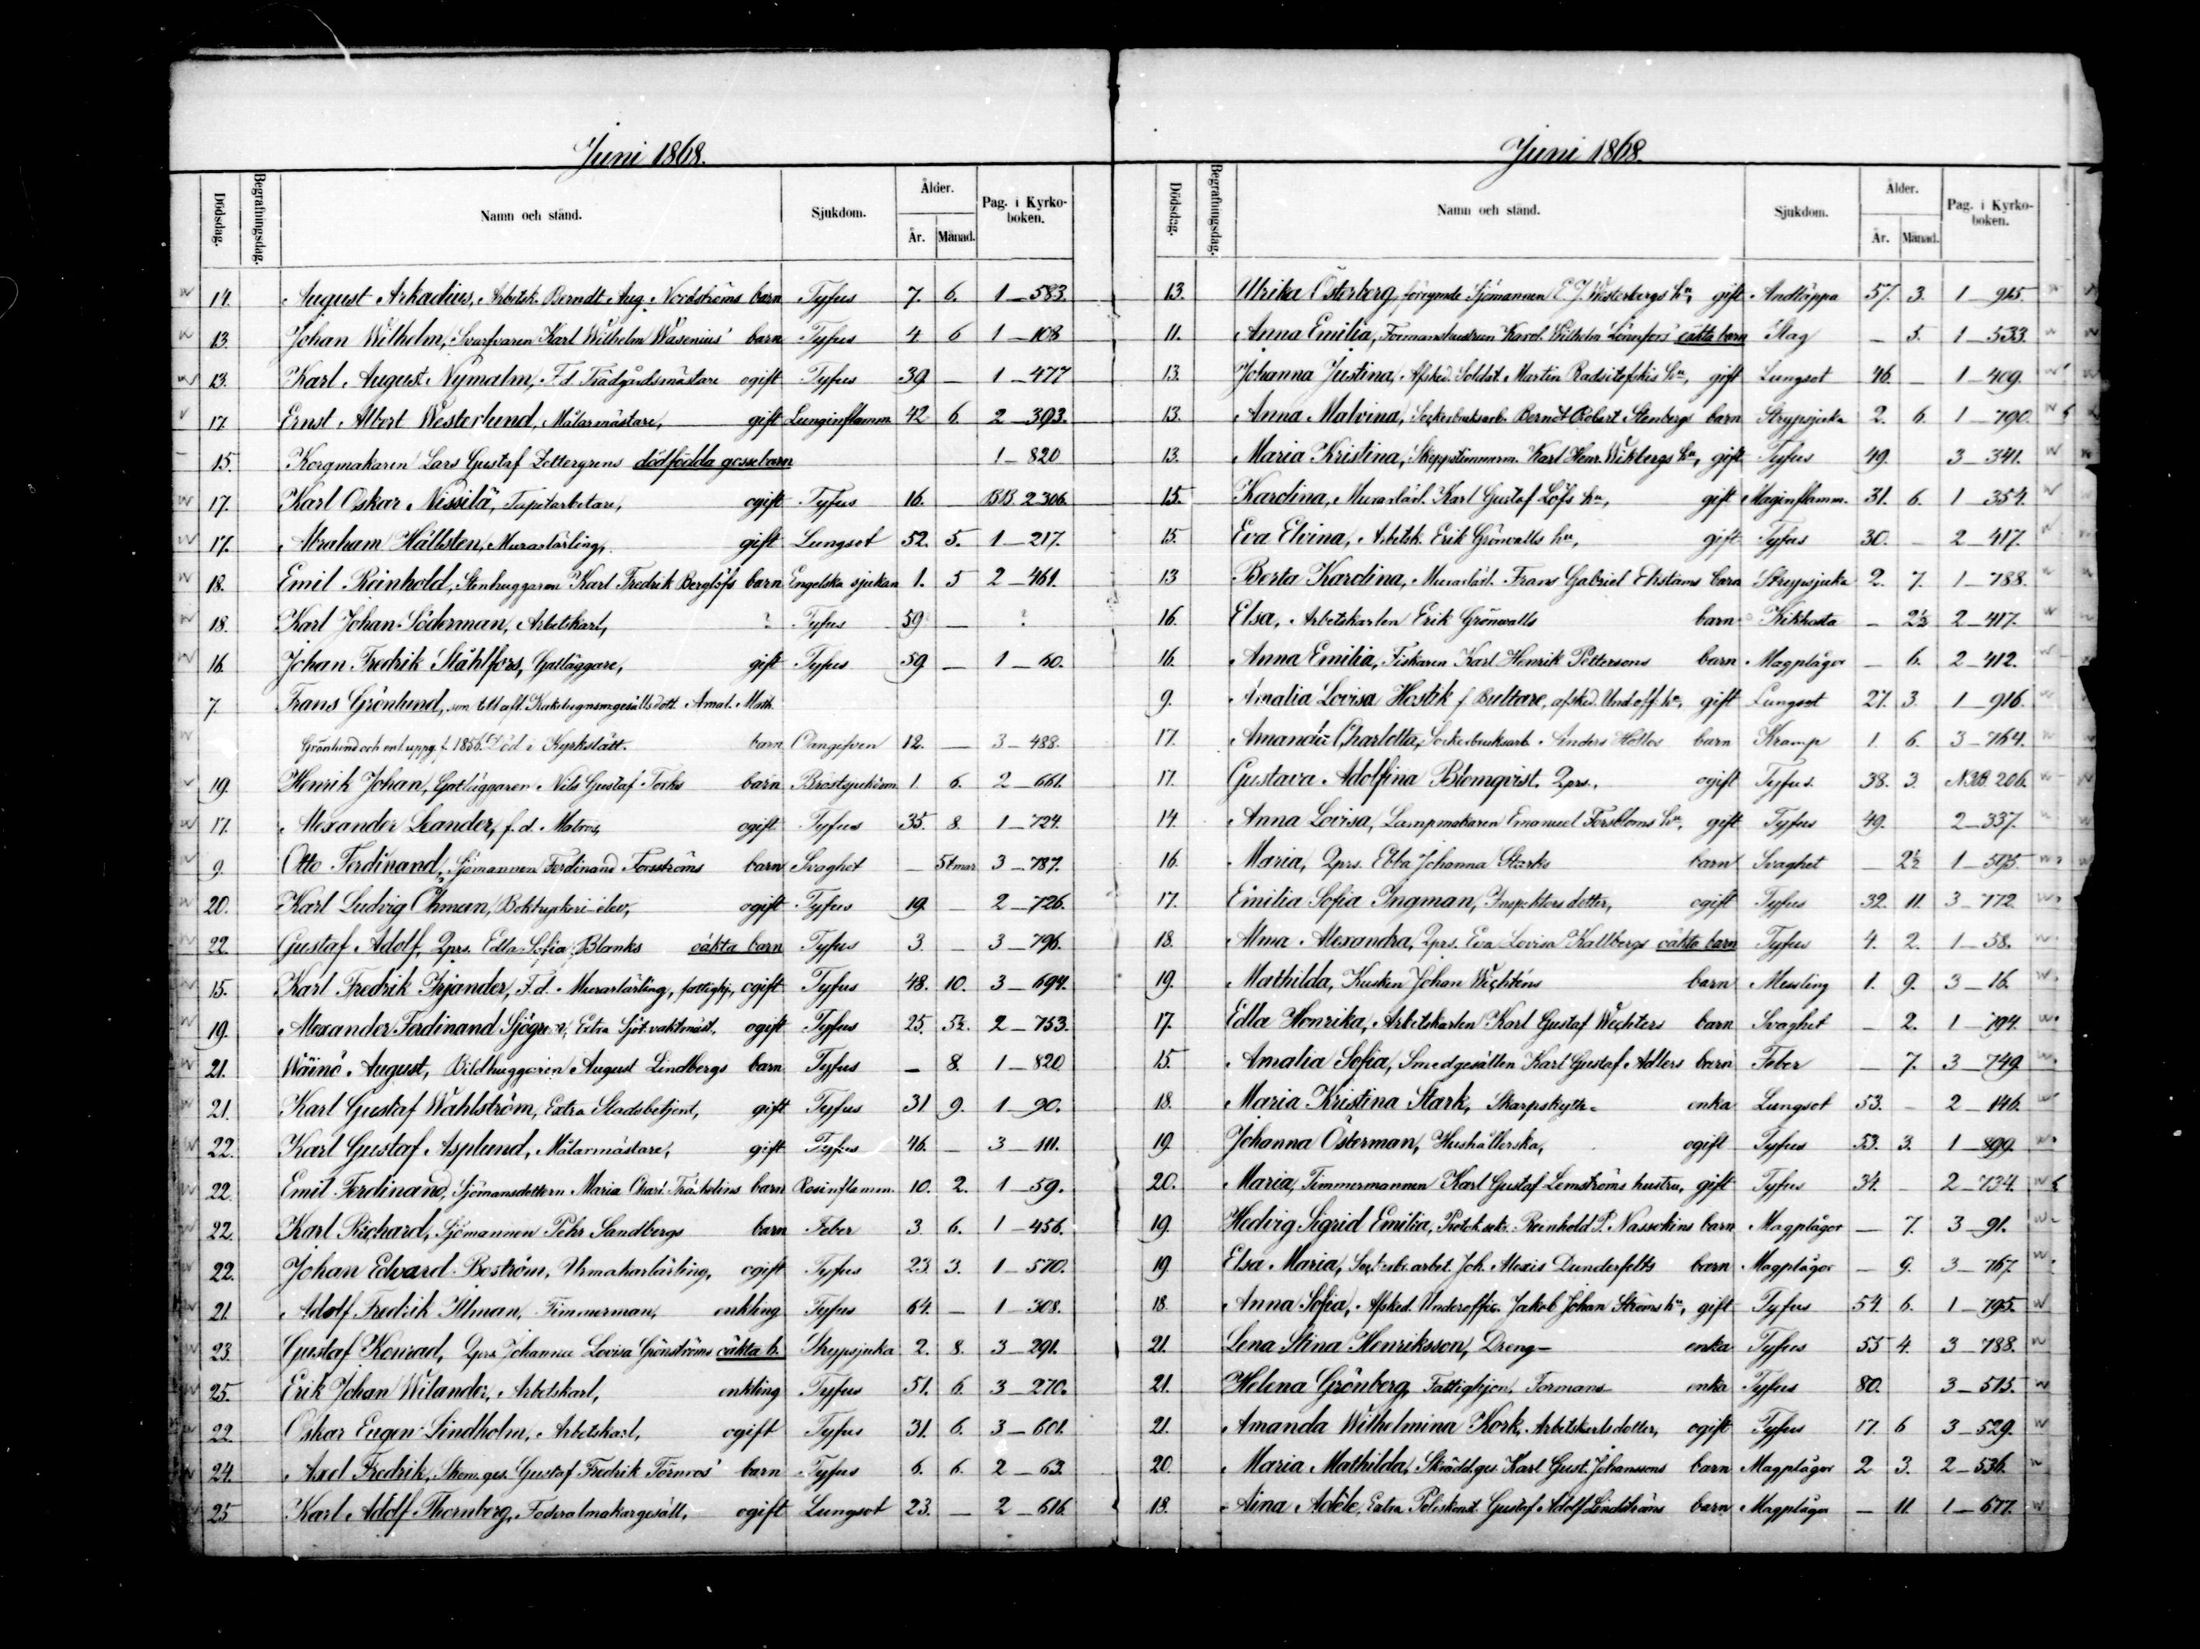 Juni 1868.
Dödsdag. Begrafningsdag. Namn och stånd. Sjukdom. Ålder. År. Månad. Pag. i Kyrko-boken.
14. August Arkadius, Arbetsk. Berndt Aug. Nordströms barn Tyfus 7. 6. 1 – 583.
13. Johan Wilhelm, Svarfvaren Karl Wilhelm Wasenius' barn Tyfus 4. 6 1 – 108
13. Karl August Nymalm, F.d. Trädgårdsmästare ogift Tyfus 39. – 1 – 477
17. Ernst Albert Westerlund, Målarmästare, gift Lunginflamm. 42 6. 2 – 393.
15. Korgmakaren Lars Gustaf Zettergrens dödfödda gossebarn 1 – 820
17. Karl Oskar Nissilä, Tapetarbetare, ogift Tyfus 16. – BB. 2 306.
17. Abraham Hällsten, Murarlärling, gift Lungsot 52. 5. 1 – 217.
18. Emil Reinhold, Stenhuggaren Karl Fredrik Berglöfs barn Engelska sjukan 1. 5 2 – 461.
18. Karl Johan Söderman, Arbetskarl, ? Tyfus 59 – ?
16. Johan Fredrik Ståhlfors, Gatläggare, gift Tyfus 59 – 1 – 60.
7. Frans Grönlund, son till afl. Kakelugnsm.gesälls dott. Amal. Math.
Grönlund och enl. uppg. f. 1856. Död i Kyrkslätt. barn Oangifven 12. – 3 – 488.
19. Henrik Johan, Gatläggaren Nils Gustaf Torks barn Bröstsjukdom 1. 6. 2 – 661.
17. Alexander Leander, f.d. Matros, ogift Tyfus 35. 8. 1 – 724.
9. Otto Ferdinand, Sjömannen Ferdinand Forsströms barn Svaghet – 3 – 787.
20. Karl Ludvig Öhman, Boktryckeri-elev, ogift Tyfus 19. – 2 – 726.
22. Gustaf Adolf, Qprs. Edla Sofia Blanks oäkta barn Tyfus 3. – 3 – 796.
15. Karl Fredrik Irjander, F.d. Murarlärling, fattighj., ogift Tyfus 48. 10. 3 – 694.
19. Alexander Ferdinand Sjögren, Extra Sjöt.vaktmäst. ogift Tyfus 25. 5½. 2 – 753.
21. Wäinö August, Bildhuggaren August Lindbergs barn Tyfus – 8. 1 – 820
21. Karl Gustaf Wahlström, Extra Stadsbetjent, gift Tyfus 31 9. 1 – 90.
22. Karl Gustaf Asplund, Målarmästare, gift Tyfus 46. – 3 – 111.
22. Emil Ferdinand, Sjömansdottern Maria Charl. barn Rosinflamm. 10. 2. 1 – 59.
22. Karl Richard, Sjömannen Pehr Sandbergs barn Feber 3. 6. 1 – 456.
22. Johan Edvard Boström, Urmakarlärling, ogift Tyfus 23. 3. 1 – 570.
21. Adolf Fredrik Illman, Timmerman, enkling Tyfus 64. – 1 – 308.
23. Gustaf Konrad, Qprs. Johanna Lovisa Grönströms oäkta b. Strypsjuka 2. 8. 3 – 291.
25. Erik Johan Wilander, Arbetskarl, enkling Tyfus 51. 6. 3 – 270.
22. Oskar Eugen Lindholm, Arbetskarl, ogift Tyfus 31. 6. 3 – 601.
24. Axel Fredrik, Skom.ges. Gustaf Fredrik Törnros' barn Tyfus 6. 6. 2 – 63.
25 Karl Adolf Thornberg, Foderalmakargesäll, ogift Lungsot 23. – 2 – 616.
Juni 1868.
Dödsdag. Begrafningsdag. Namn och stånd. Sjukdom. Ålder. År. Månad. Pag. i Kyrko-boken.
13. Ulrika Österberg, förrymde Sjömannen E. J. Westerbergs hu, gift Andtäppa 57. 3. 1 – 915
11. Anna Emilia, Formanshustrun Karol. Wilhelm. Lönnfors' oäkta barn Slag – 5. 1 – 533.
13. Johanna Justina, Afsked. Soldat. Martin Radsitefskis hu, gift Lungsot 46. – 1 – 409.
13. Anna Malvina, Sockerbruksarb. Berndt Robert Stenbergs barn Strypsjuka 2. 6. 1 – 790.
13. Maria Kristina, Skeppstimmerm. Karl Henr. Wikbergs hu, gift Tyfus 49. 3 – 341.
15. Karolina, Murarlärl. Karl Gustaf Löfs hu, gift Maginflamm. 31. 6. 1 – 354.
15. Eva Elvina, Arbetsk. Erik Grönvalls hu, gift Tyfus 30. – 2 – 417.
13 Berta Karolina, Murarlärl. Frans Gabriel Ekstams barn Strypsjuka 2. 7. 1 – 788.
16. Elsa, Arbetskarlen Erik Grönvalls barn Kikhosta – 2½ 2 – 417.
16. Anna Emilia, Fiskaren Karl Henrik Pettersons barn Magplågor – 6. 2 – 412.
9. Amalia Lovisa Hostik f. Bultare, afsked. Und.off. hu, gift Lungsot 27. 3. 1 – 916.
17. Amanda Charlotta, Sockerbruksarb. Anders barn Kramp 1. 6. 3 – 764.
17. Gustava Adolfina Blomqvist, Qprs., ogift Tyfus. 38. 3. NBB. 206.
14. Anna Lovisa, Lampmakaren Emanuel Forsbloms hu, gift Tyfus 49. 2 – 337.
16. Maria, Qprs. Ebba Johanna Starks barn Svaghet – 2½ 1 – 595
17. Emilia Sofia Ingman, Inspektors dotter, ogift Tyfus 32. 11. 3 – 772.
18. Alma Alexandra, Qprs. Eva Lovisa Kallbergs oäkta barn Tyfus 4. 2. 1 – 58.
19. Mathilda, Kusken Johan barn Messling 1. 9. 3 – 16.
17. Edla Henrika, Arbetskarlen Karl Gustaf Wechters barn Svaghet – 2. 1 – 194.
15. Amalia Sofia, Smedgesällen Karl Gustaf Adlers barn Feber – 7. 3 – 749.
18. Maria Kristina Stark, Skarpskytte- enka Lungsot 53. – 2 – 146.
19. Johanna Österman, Hushållerska, ogift Tyfus 53. 3. 1 – 899.
20. Maria, Timmermannen Karl Gustaf Lemströms hustru, gift Tyfus 34. – 2 – 734.
19. Hedvig Sigrid Emilia, Protok.sekr. Reinhold P. Nassokins barn Magplågor – 7. 3 – 91.
19 Elsa Maria, arbet. Joh. Alexis Dunderfelts barn Magplågor – 9. 3 – 767.
18. Anna Sofia, Afsked. Underoffic. Jakob Johan Ströms hu, gift Tyfus 54. 6. 1 – 795.
21. Lena Stina Henriksson, Dreng- enka Tyfus 55 4. 3 – 788.
21. Helena Grönberg, Fattighjon, Formans- enka Tyfus 80. 3 – 515.
21. Amanda Wilhelmina Kork, Arbetskarlsdotter, ogift Tyfus 17. 6 3 – 529.
20. Maria Mathilda, Skrädd.ges. Karl Gust. Johanssons barn Magplågor 2 3. 2 – 536.
18. Aina Adèle, Extra Poliskonst. Gustaf Adolf Lindströms barn Magplågor – 11. 1 – 677.